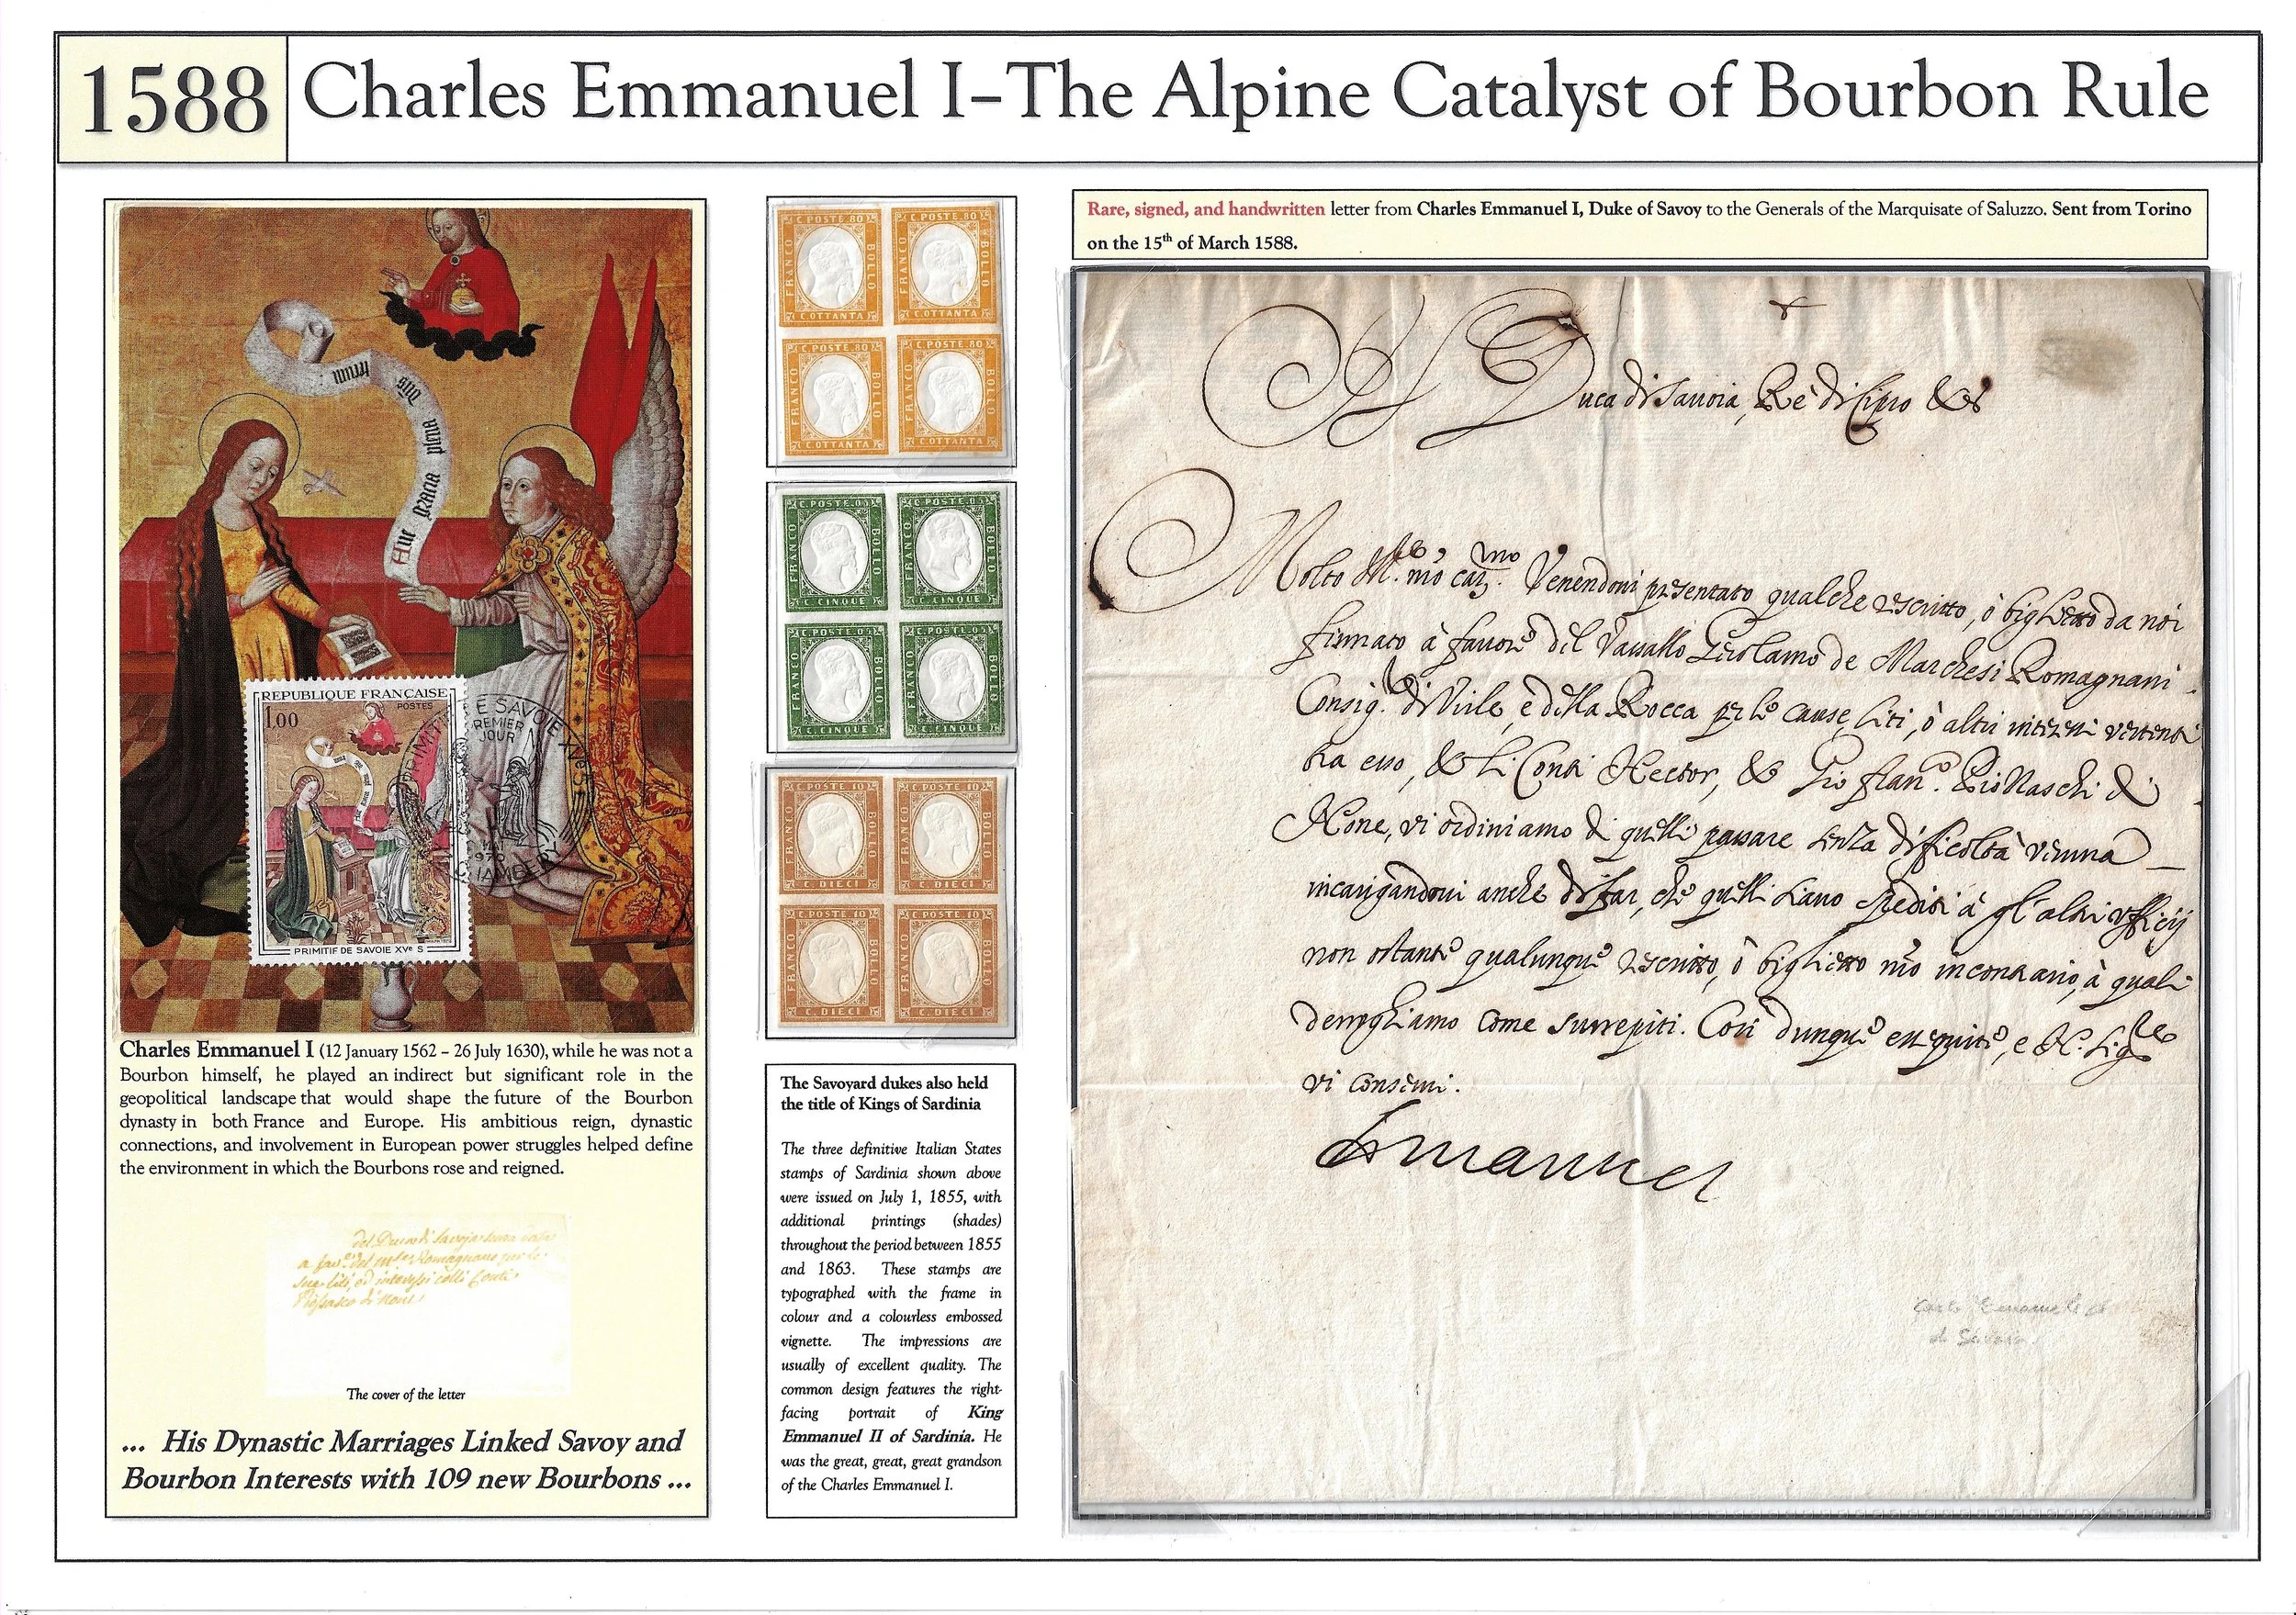 1588
Charles Emmanuel I–The Alpine Catalyst of Bourbon Rule
Aue gracia plena Dns tecum
REPUBLIQUE FRANÇAISE
POSTES
1.00
PRIMITIF DE SAVOIE XVe S
PRIMITIF DE SAVOIE XVe S
PREMIER
JOUR
CHAMBERY
Charles Emmanuel I (12 January 1562 – 26 July 1630), while he was not a
Bourbon himself, he played an indirect but significant role in the
geopolitical landscape that would shape the future of the Bourbon
dynasty in both France and Europe. His ambitious reign, dynastic
connections, and involvement in European power struggles helped define
the environment in which the Bourbons rose and reigned.
del Duca di Savoja
a fav. del Romagnano per le
sue liti, od interessi colli Conti
The cover of the letter
... His Dynastic Marriages Linked Savoy and
Bourbon Interests with 109 new Bourbons ...
C.POSTE.80 FRANCO BOLLO C.OTTANTA
C.POSTE.80 FRANCO BOLLO C.OTTANTA
C.POSTE.80 FRANCO BOLLO C.OTTANTA
C.POSTE.80 FRANCO BOLLO C.OTTANTA
C.POSTE.05 FRANCO BOLLO C.CINQUE
C.POSTE.05 FRANCO BOLLO C.CINQUE
C.POSTE.05 FRANCO BOLLO C.CINQUE
C.POSTE.05 FRANCO BOLLO C.CINQUE
C.POSTE 10 FRANCO BOLLO C.DIECI
C.POSTE 10 FRANCO BOLLO C.DIECI
C.POSTE 10 FRANCO BOLLO C.DIECI
C.POSTE 10 FRANCO BOLLO C.DIECI
The Savoyard dukes also held
the title of Kings of Sardinia
The three definitive Italian States
stamps of Sardinia shown above
were issued on July 1, 1855, with
additional printings (shades)
throughout the period between 1855
and 1863. These stamps are
typographed with the frame in
colour and a colourless embossed
vignette. The impressions are
usually of excellent quality. The
common design features the right-
facing portrait of King
Emmanuel II of Sardinia. He
was the great, great, great grandson
of the Charles Emmanuel I.
Rare, signed, and handwritten letter from Charles Emmanuel I, Duke of Savoy to the Generals of the Marquisate of Saluzzo. Sent from Torino
on the 15th of March 1588.
Il Duca di Sauoia, Rè di Cipro &c
Molto Venendoui presentato qualche rescritto, ò biglietto da noi
firmato à fauore del Vassallo Gerolamo de Marchesi Romagnani
Consig. di Virle, e della Rocca per le cause, liti, ò altri interessi vertenti
tra esso, & li Conti Hector, & Gio fran.
None, vi ordiniamo di quelli passare senza dificoltà veruna
incarigandoui anche di far, che quelli siano spediti à gl'altri ufficij
non ostante qualunque rescritto, ò biglietto nro in contrario, à quali
deroghiamo come surrepiti. Così dunque esseguite, e N. Sig.
vi conserui.
Emanuel
Carlo Emanuele
di Savoia